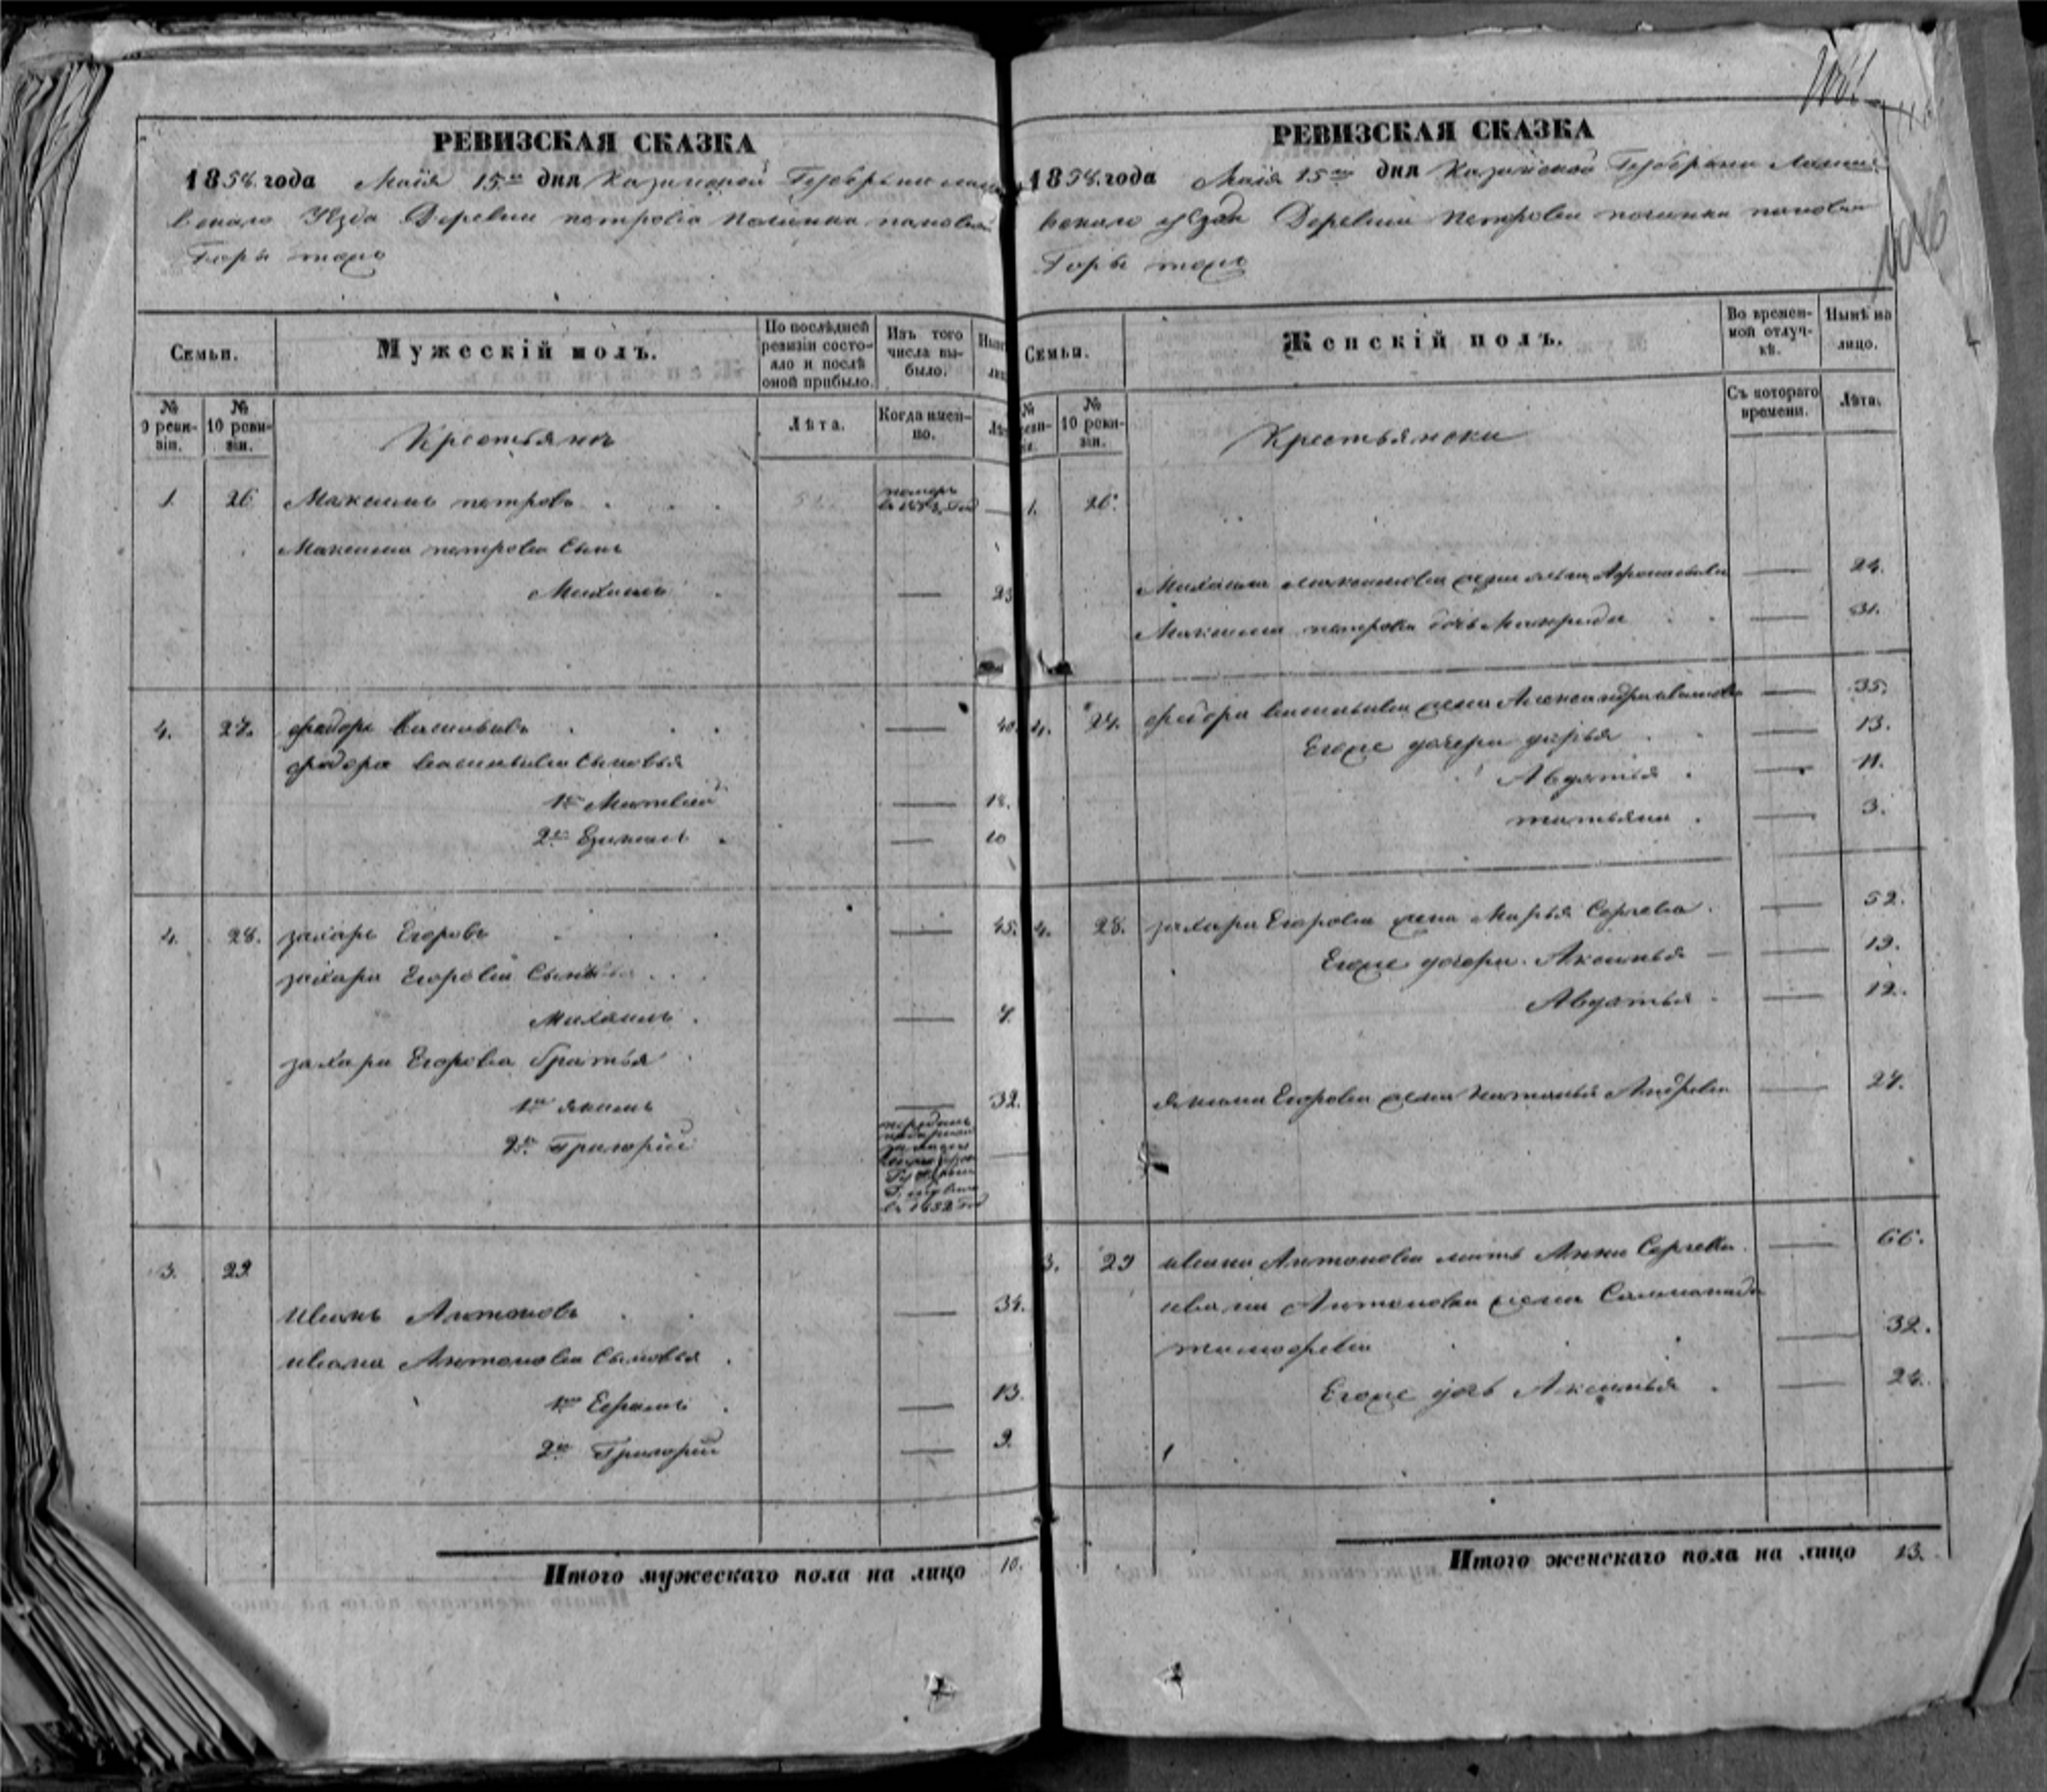 РЕВИЗСКАЯ СКАЗКА
1858. года Маія 15го дня Казанской Губерніи
Уѣзда Деревни петрова починка пановы
Горы тожъ
Семьи.
Мужескій полъ.
По послѣдней ревизіи состояло и послѣ оной прибыло.
Изъ того числа выбыло.
№ 9 ревизіи.
№ 10 ревизіи.
Крестьянъ
Лѣта.
Когда именно.
1. 26 Максимъ петровъ 52 померъ
Максима петрова сынъ
Михаилъ — 23
4. 27. федоръ васильевъ — 40
федора васильева сыновья
1й Матвѣй — 18.
2й — 10
4. 28. захаръ Егоровъ — 45.
захара Егорова сынъ
Михаилъ — 7.
захара Егорова братья
1й якимъ — 32.
2й Григорій
в 1852 год
3. 29
иванъ Антоновъ — 34.
ивана Антонова сыновья
1й Ефимъ — 13.
2й Григорій — 9.
Итого мужескаго пола на лицо 10.
РЕВИЗСКАЯ СКАЗКА
1858. года Маія 15го дня Казанской Губерніи
уѣзда Деревни петрова починка пановы
Горы тожъ
Семьи.
Женскій полъ.
Во временной отлучкѣ.
Нынѣ на лицо.
№ 10 ревизіи.
Крестьянски
Съ котораго времени.
Лѣта.
1. 26.
Михаила максимова жена — 24.
Максима петрова дочь — 31.
4. 27. федора васильева жена Александра иванова — 35.
Егоже дочери дарья — 13.
Авдотья — 11.
татьяна — 3.
4. 28. захара Егорова жена Марья Сергева — 52.
Егоже дочери Аксинья — 19.
Авдотья — 12.
якима Егорова жена Наталья Андрева — 27.
3. 29 ивана Антонова мать Анна Сергева — 66.
ивана Антонова жена
тимофева — 32.
Егоже дочь Аксинья — 24.
Итого женскаго пола на лицо 13.